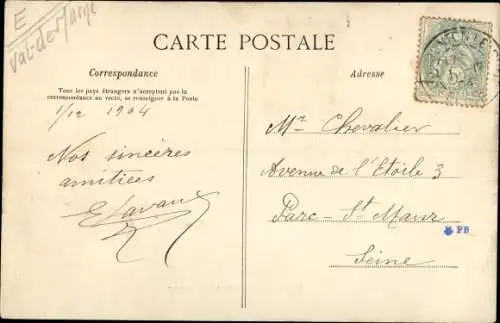 E
Val-de-Marne
CARTE POSTALE
Correspondance
Tous les pays étrangers n'acceptent pas la
correspondance au verso, se renseigner à la Poste
Adresse
1/12 1904
Nos sincères
amitiées
Mr Chevalier
Avenue de l'Etoile 3
Parc-St Maur
Seine
PB